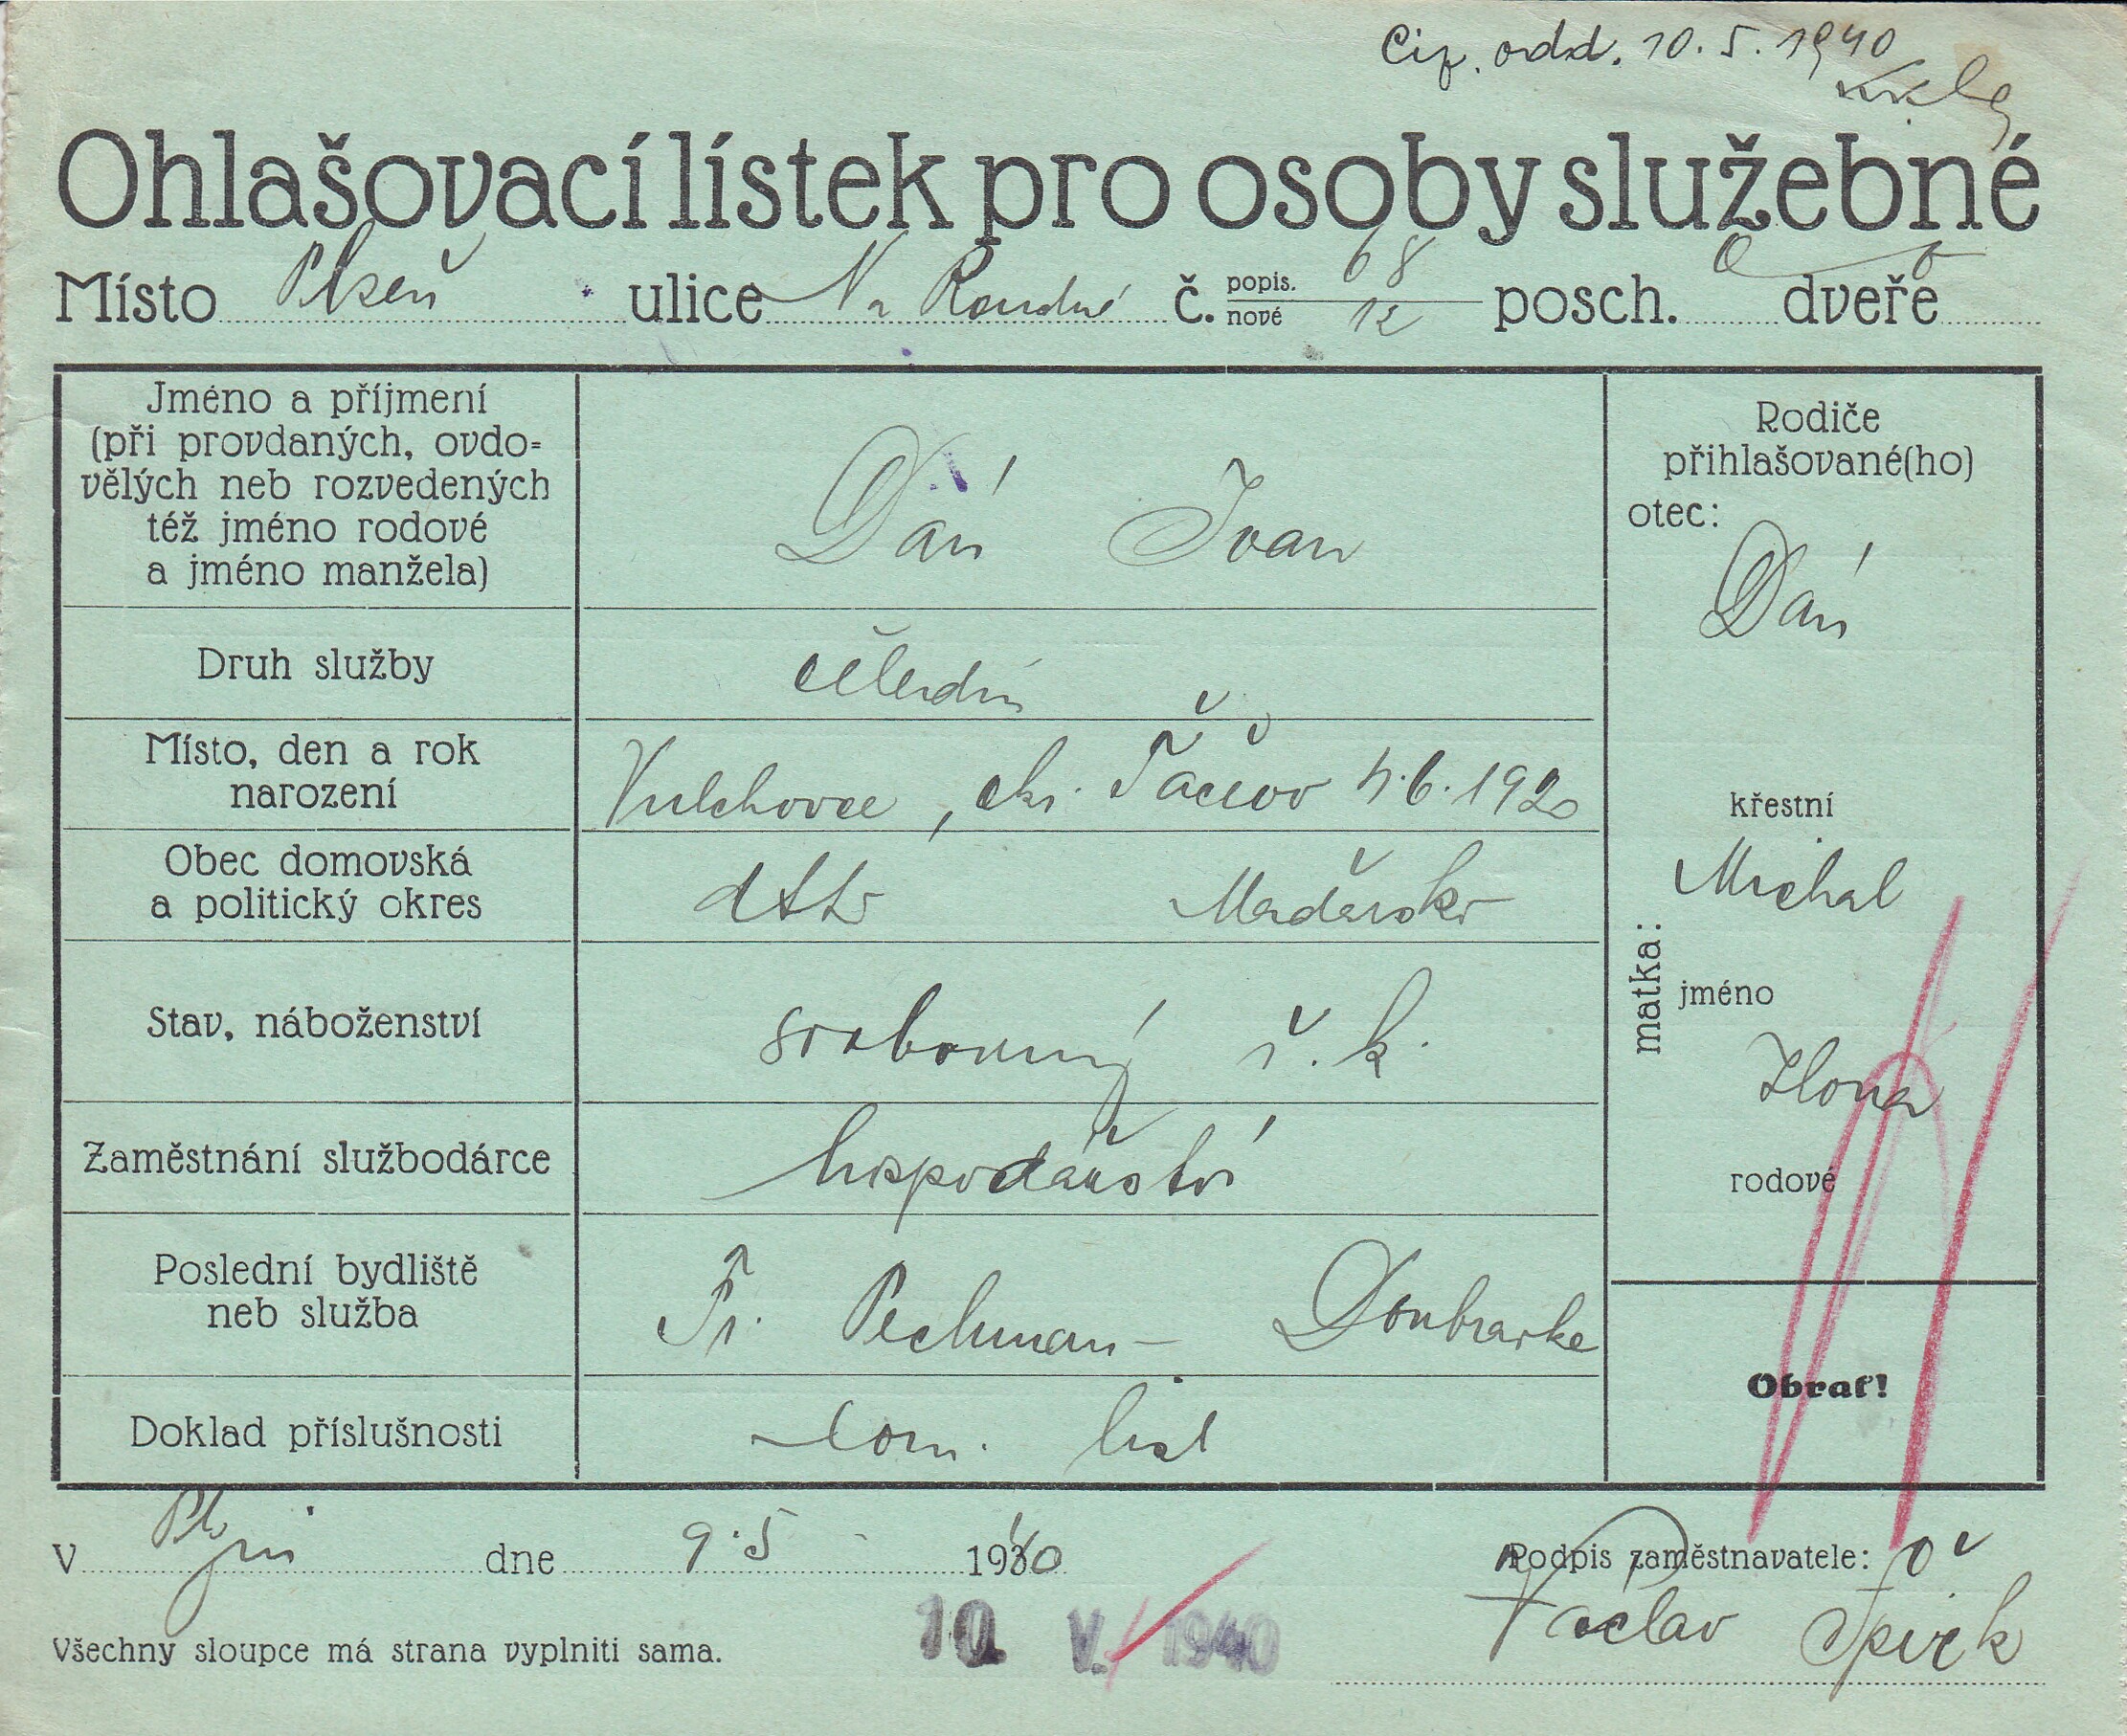 Ciz. odd. 10. 5. 1940
Ohlašovací lístek pro osoby služebné
Místo Plzeň ulice Na Roudné č. popis. 68 nové 12 posch. 0 dveře
Jméno a příjmení
(při provdaných, ovdo=
vělých neb rozvedených
též jméno rodové
a jméno manžela)
Dáň Ivan
Druh služby
čeledín
Místo, den a rok
narození
Vulchovce, okr. Ťačevo 4.6.1920
Obec domovská
a politický okres
dtto Maďarsko
Stav, náboženství
svobodný ř. k.
Zaměstnání službodárce
hospodářství
Poslední bydliště
neb služba
Fr. Pechman Doubravka
Doklad příslušnosti
dom. list
Rodiče
přihlašované(ho)
otec:
Dáň
křestní
Michal
matka:
jméno
Ilona
rodové
Obrať!
V Plzni dne 9.5 1940
Podpis zaměstnavatele:
Václav Špirk
10. V. 1940
Všechny sloupce má strana vyplniti sama.